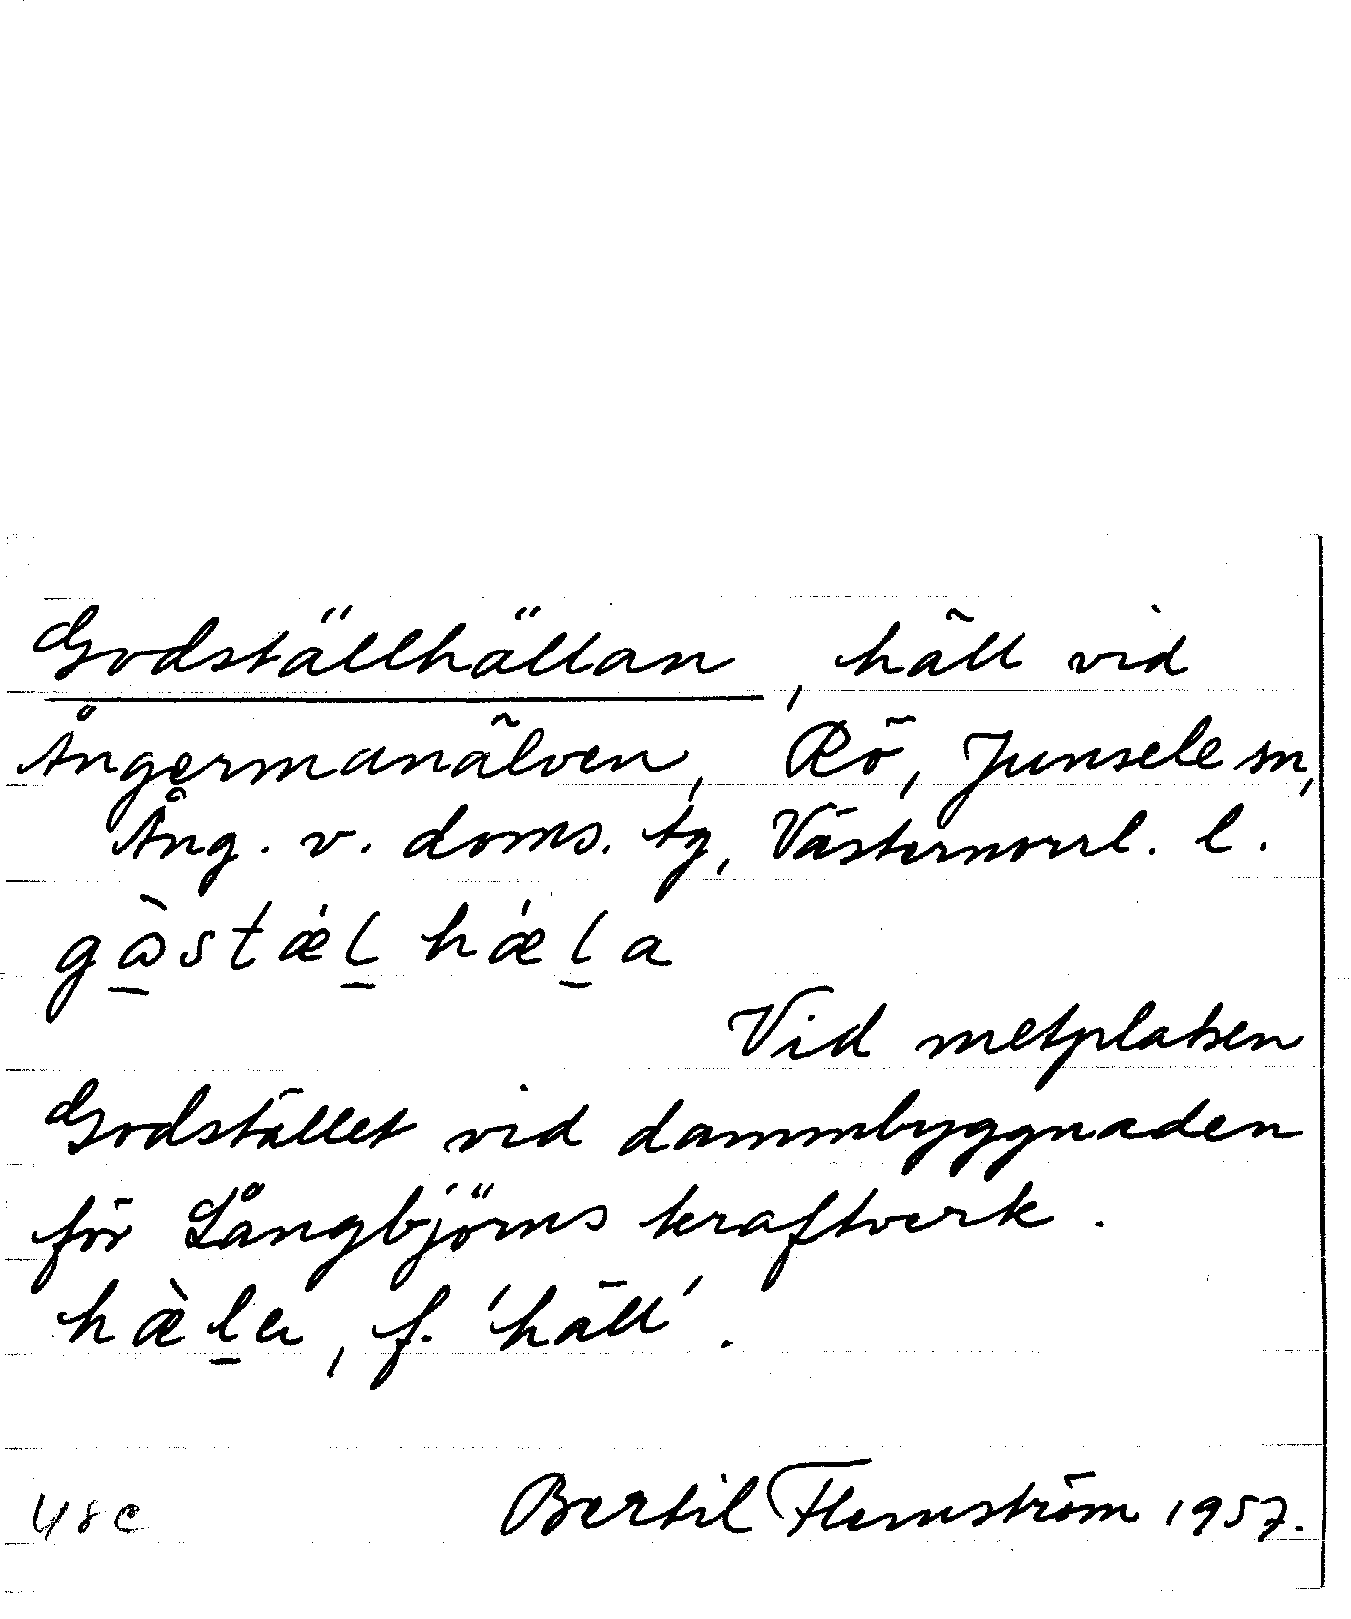 Godställhällan, häll vid
Ångermanälven, Rö, Junsele sn,
Ång. v. doms. tg, Västernorrl. l.
gɷ̲̀stǽl̲hǽl̲a
Vid metplatsen
Godstället vid dammbyggnaden
för Långbjörns kraftverk.
hæ̀l̲a, f. 'häll'.
48c Bertil Flemström 1957.